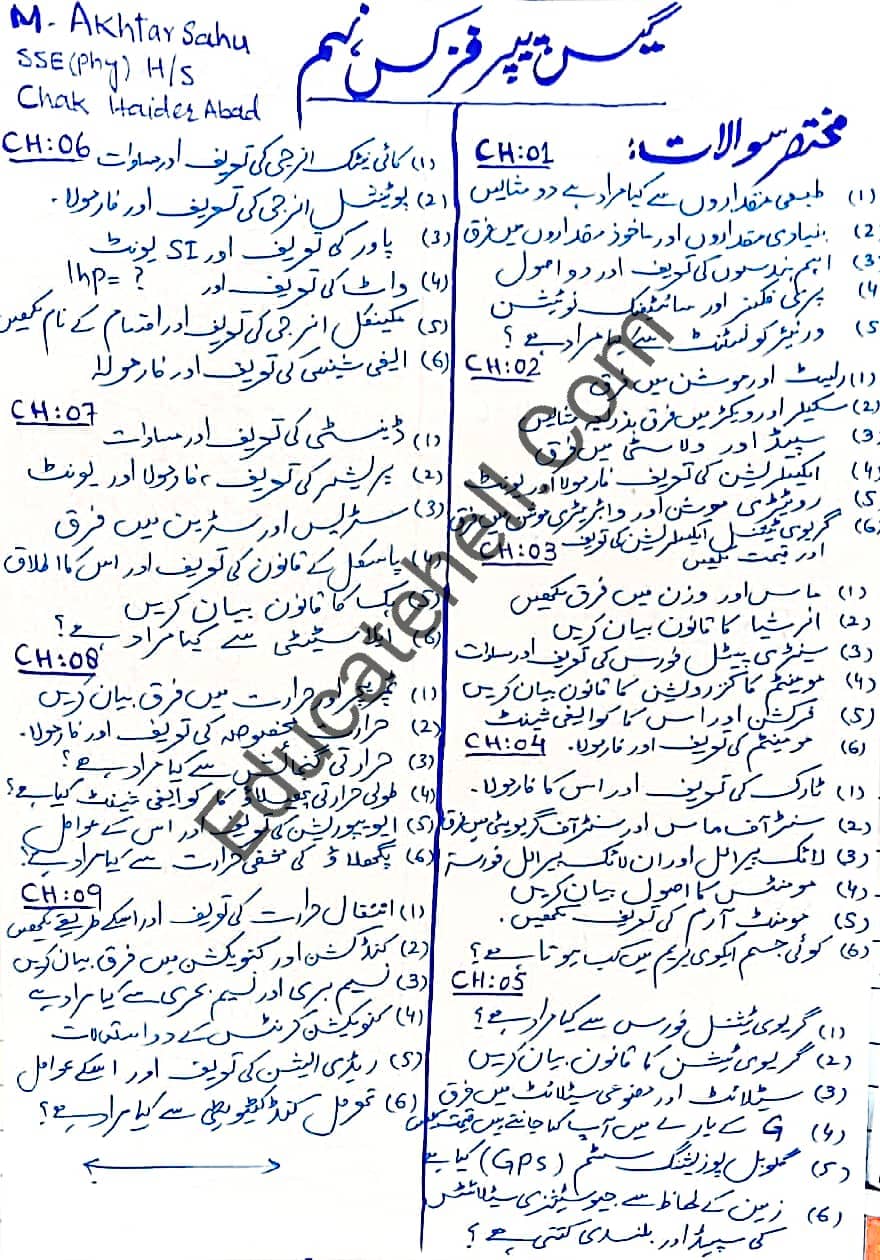 M. Akhtar Sahu
SSE(Phy) H/S
Chak Haider Abad
گیس پیپر فزکس نہم
مختصر سوالات:
CH:01
(1) طبعی مقداروں سے کیا مراد ہے دو مثالیں
(2 بنیادی مقداروں اور ماخوذ مقداروں میں فرق
(3 اہم ہندسوں کی تعریف اور دو اصول
(4 پری فکسز اور سائنٹیفک نوٹیشن
(5 ورنیئر کونسٹنٹ سے کیا مراد ہے ؟
CH:02
(1) ریسٹ اور موشن میں فرق
(2) سکیلر اور ویکٹر میں فرق بذریعہ مثالیں
(3 سپیڈ اور ولاسٹی میں فرق
(4) ایکسلریشن کی تعریف فارمولا اور یونٹ
(5 روٹیٹری موشن اور وائبریٹری موشن میں فرق
(6) گریوی ٹیشنل ایکسلریشن کی تعریف
اور قیمت لکھیں
CH:03
(1) ماس اور وزن میں فرق لکھیں
(2) انرشیا کا قانون بیان کریں
(3) سینٹری پیٹل فورس کی تعریف اور مساوات
(4) مومینٹم کا کنزرویشن کا قانون بیان کریں
(5) فرکشن اور اس کا کوایفی شینٹ
(6) مومینٹم کی تعریف اور فارمولا.
CH:04
(1) ٹارک کی تعریف اور اس کا فارمولا.
(2) سنٹر آف ماس اور سنٹر آف گریویٹی میں فرق
(3) لائک پیرالل اور ان لائک پیرالل فورسز
(4) مومنٹس کا اصول بیان کریں
(5) مومنٹ آرم کی تعریف لکھیں.
(6) کوئی جسم ایکوی لبریم میں کب ہوتا ہے؟
CH:05
(1) گریوی ٹیشنل فورس سے کیا مراد ہے؟
(2) گریوی ٹیشن کا قانون بیان کریں
(3) سیٹلائٹ اور مصنوعی سیٹلائٹ میں فرق
(4) G کے بارے میں آپ کیا جانتے ہیں قیمت لکھیں
(5) گلوبل پوزیشنگ سسٹم (GPS) کیا ہے
(6) زمین کے لحاظ سے جیوسٹیشنری سیٹلائٹس
کی سپیڈ اور بلندی کتنی ہے ؟
CH:06
(1) کائی نیٹک انرجی کی تعریف اور مساوات
(2) پوٹینشل انرجی کی تعریف اور فارمولا.
(3) پاور کی تعریف اور SI یونٹ
(4) واٹ کی تعریف اور 1hp= ?
(5) مکینیکل انرجی کی تعریف اور اقسام کے نام لکھیں
(6) ایفی شینسی کی تعریف اور فارمولا
CH:07
(1) ڈینسٹی کی تعریف اور مساوات
(2) پریشر کی تعریف، فارمولا اور یونٹ
(3) سٹریس اور سٹرین میں فرق
(4) پاسکل کے قانون کی تعریف اور اس کا اطلاق
(5) ہک کا قانون بیان کریں
(6) ایلاسٹیسٹی سے کیا مراد ہے؟
CH:08
(1) ٹمپریچر اور حرارت میں فرق بیان کریں
(2) حرارت مخصوصہ کی تعریف اور فارمولا.
(3) حرارتی گنجائش سے کیا مراد ہے؟
(4) طولی حرارتی پھیلاؤ کا کوایفی شینٹ کیا ہے؟
(5) ایویپوریشن کی تعریف اور اس کے عوامل
(6) پگھلاؤ کی مخفی حرارت سے کیا مراد ہے؟
CH:09
(1) انتقال حرارت کی تعریف اور اسکے طریقے لکھیں
(2) کنڈکشن اور کنویکشن میں فرق بیان کریں
(3) نسیم بری اور نسیم بحری سے کیا مراد ہے
(4) کنویکشن کرنٹس کے دو استعمالات
(5) ریڈی ایشن کی تعریف اور اسکے عوامل
(6) تھرمل کنڈکٹیویٹی سے کیا مراد ہے؟
Educatehell.com